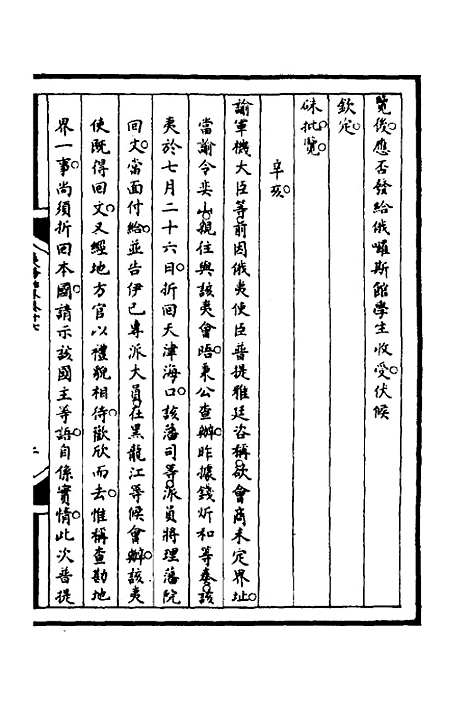 覽後應否發給俄囉斯館學生收受伏候
欽定
硃批覽
辛亥
諭軍機大臣等前因俄夷使臣普提雅廷咨稱欲會商未定界址
當諭令奕山親往與該夷會晤秉公查辦昨據錢炘和等奏該
夷於七月二十六日折回天津海口該藩司等派員將理藩院
回文當面付給並告伊已專派大員在黑龍江等候會辦該夷
使既得回文又經地方官以禮貌相待歡欣而去惟稱查勘地
界一事尚須折回本國請示該國主等語自係實情此次普提